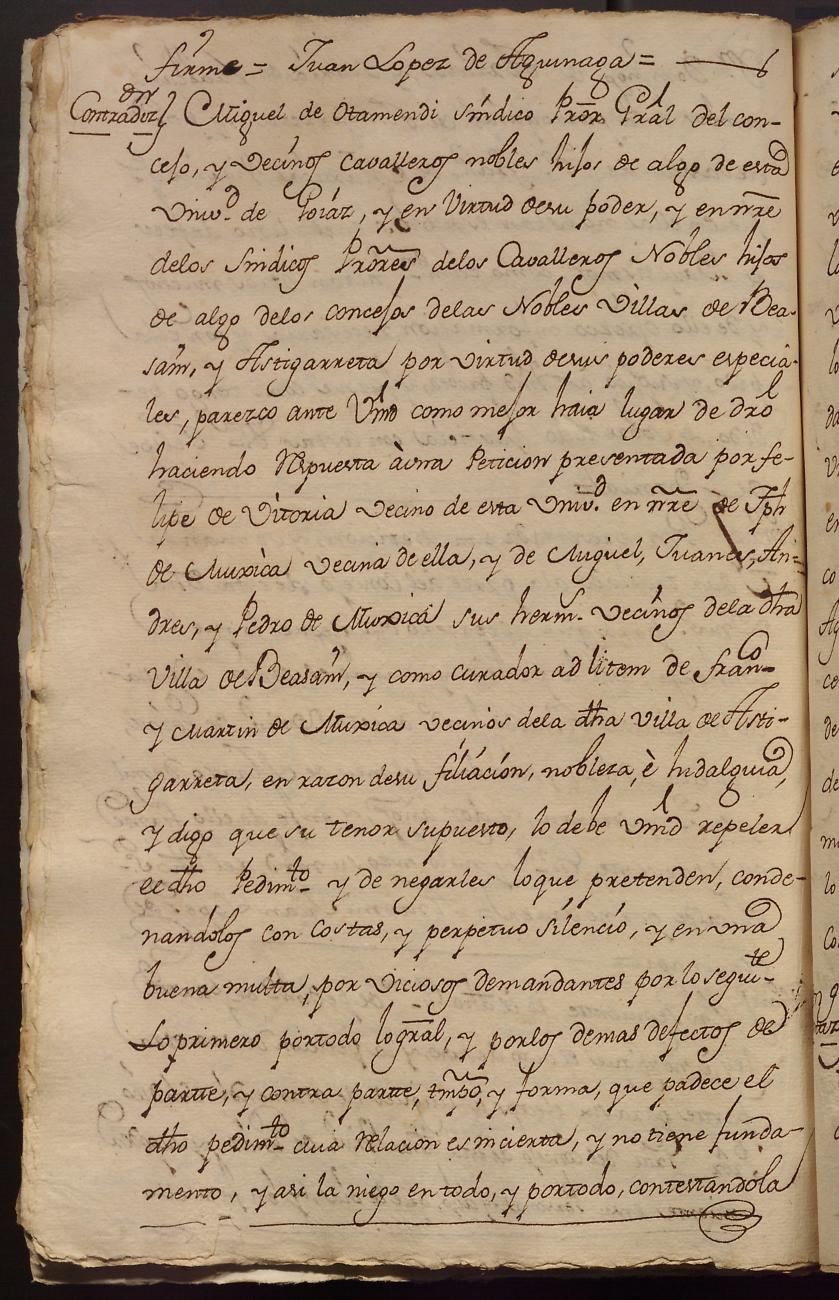 firme = Juan Lopez de Aguinaga =
Contradiz.on Miguel de Otamendi sindico Pror. Gral del con-
cejo, y vecinos cavalleros nobles hijos de algo de esta
Univ.d de Goiaz, y en Virtud desu poder, y en nre
delos Sindicos Prores delos Cavalleros Nobles hijos
de algo delos concejos delas Nobles Villas de Bea-
sain, y Astigarreta por virtud desus poderes especia-
les, parezco ante Vmd como mejor haia lugar de dro
haciendo Repuesta à una Peticion presentada por fe-
lipe de Vitoria vecino de esta Univ.d en nre de Jph
de Muxica vecina de ella, y de Miguel, Juanes, An-
dres, y Pedro de Muxica sus herm.s vecinos dela dha
Villa de Beasain, y como curador ad litem de fran.co
y Martin de Muxica vecinos dela dha villa de Asti-
garreta, en razon desu filiacion, nobleza, è hidalguia,
y digo que su tenor supuesto, lo debe Vmd repeler
el dho Pedim.to y de negarles loque pretenden, conde-
nandolos con costas, y perpetuo silencio, y en una
buena multa, por viciosos demandantes por lo seguì.te
Lo primero portodo lo gral, y porlos demas defectos de
parte, y contra parte, tmpo, y forma, que padece el
dho pedim.to cuia Relacion es incierta, y no tiene funda-
mento, y asi la niego en todo, y portodo, contestandola